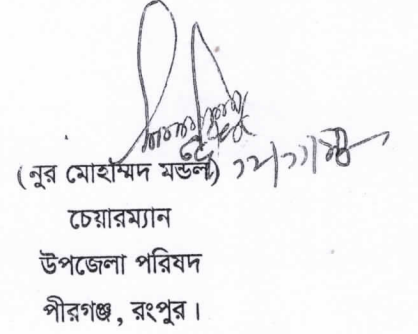 (নুর মোহাম্মদ মন্ডল)
চেয়ারম্যান
উপজেলা পরিষদ
পীরগঞ্জ, রংপুর।